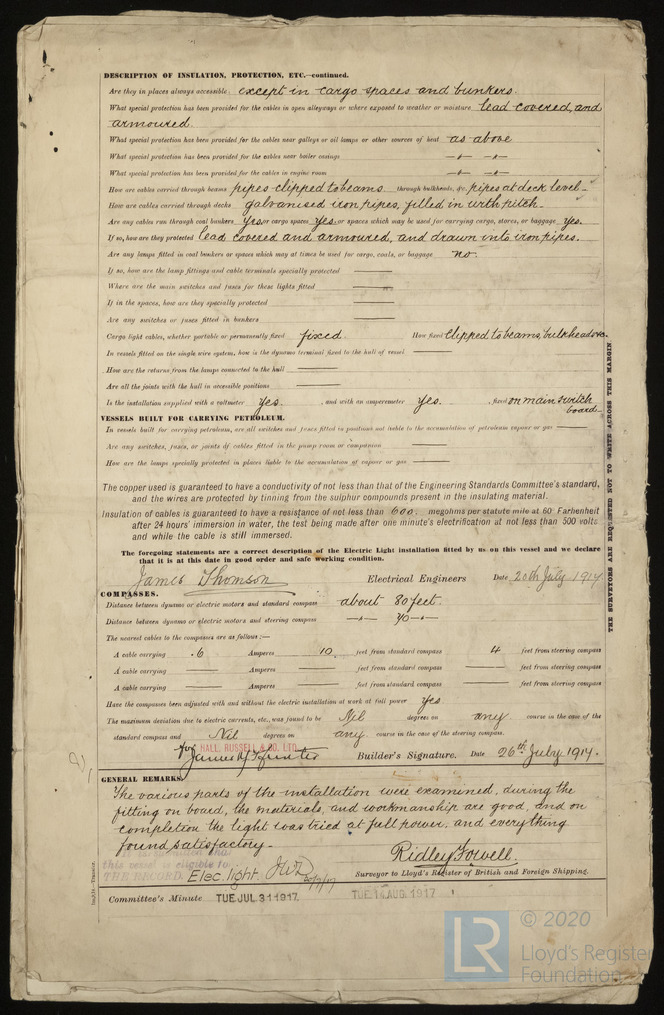 DESCRIPTION OF INSULATION, PROTECTION, ETC.—continued.
Are they in places always accessible except in cargo spaces and bunkers.
What special protection has been provided for the cables in open alleyways or where exposed to weather or moisture lead covered, and
armoured.
What special protection has been provided for the cables near galleys or oil lamps or other sources of heat as above
What special protection has been provided for the cables near boiler casings —„— —„—
What special protection has been provided for the cables in engine room —„— —„—
How are cables carried through beams pipes clipped to beams through bulkheads, &c. pipes at deck level
How are cables carried through decks galvanised iron pipes, filled in with pitch.
Are any cables run through coal bunkers Yes or cargo spaces yes or spaces which may be used for carrying cargo, stores, or baggage yes.
If so, how are they protected lead covered and armoured, and drawn into iron pipes.
Are any lamps fitted in coal bunkers or spaces which may at times be used for cargo, coals, or baggage no.
If so, how are the lamp fittings and cable terminals specially protected
Where are the main switch and fuses for these lights fitted
If in the spaces, how are they specially protected
Are any switches or fuses fitted in bunkers
Cargo light cables, whether portable or permanently fixed fixed How fixed Clipped to beams, bulkheads &c.
In vessels fitted on the single wire system, how is the dynamo terminal fixed to the hull of vessel
How are the returns from the lamps connected to the hull
Are all the joints with the hull in accessible positions
Is the installation supplied with a voltmeter yes. , and with an amperemeter yes. , fixed on main switch
board
VESSELS BUILT FOR CARRYING PETROLEUM.
In vessels built for carrying petroleum, are all switches and fuses fitted in positions not liable to the accumulation of petroleum vapour or gas
Are any switches, fuses, or joints of cables fitted in the pump room or companion
How are the lamps specially protected in places liable to the accumulation of vapour or gas
The copper used is guaranteed to have a conductivity of not less than that of the Engineering Standards Committee's standard,
and the wires are protected by tinning from the sulphur compounds present in the insulating material.
Insulation of cables is guaranteed to have a resistance of not less than 600. megohms per statute mile at 60° Farhenheit
after 24 hours' immersion in water, the test being made after one minute's electrification at not less than 500 volts
and while the cable is still immersed.
The foregoing statements are a correct description of the Electric Light installation fitted by us on this vessel and we declare
that it is at this date in good order and safe working condition.
James Thomson Electrical Engineers Date 20th July 1917
COMPASSES.
Distance between dynamo or electric motors and standard compass about 80 feet.
Distance between dynamo or electric motors and steering compass —„— 70 —„—
The nearest cables to the compasses are as follows:—
A cable carrying .6 Amperes 10. feet from standard compass 4 feet from steering compass
A cable carrying Amperes feet from standard compass feet from steering compass
A cable carrying Amperes feet from standard compass feet from steering compass
Have the compasses been adjusted with and without the electric installation at work at full power Yes
The maximum deviation due to electric currents, etc., was found to be Nil degrees on any course in the case of the
standard compass and Nil degrees on any course in the case of the steering compass.
For HALL, RUSSELL & CO. LTD.
Builder's Signature. Date 26th July 1917.
GENERAL REMARKS.
The various parts of the installation were examined, during the
fitting on board, the materials, and workmanship are good, and on
completion the light was tried at full power, and everything
found satisfactory.
this vessel is eligible to
THE RECORD. Elec. light
Ridley Fowell.
Surveyor to Lloyd's Register of British and Foreign Shipping.
Committee's Minute TUE. JUL. 31 1917. TUE. 14 AUG. 1917
THE SURVEYORS ARE REQUESTED NOT TO WRITE ACROSS THIS MARGIN.
LR © 2020
Lloyd's Register
Foundation